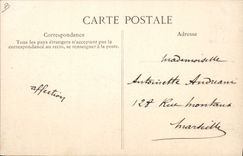 CARTE POSTALE
Correspondance
Tous les pays étrangers n'acceptant pas la
correspondance au recto, se renseigner à la poste.
Adresse
affection
Mademoiselle
Antoinette Andreani
128 Rue
Marseille